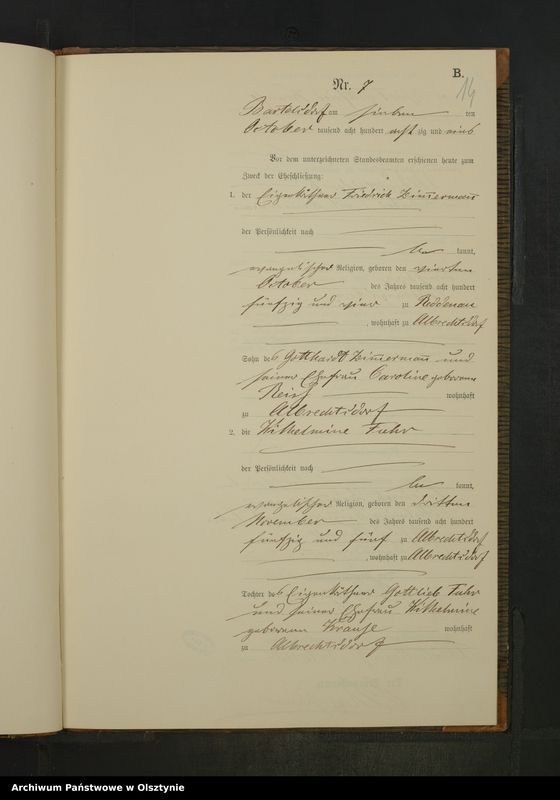 B.
14
Nr. 7
Bartelsdorf am sieben ten
October tausend acht hundert acht zig und eins
Vor dem unterzeichneten Standesbeamten erschienen heute zum
Zweck der Eheschließung:
1. der Eigenkäthner Friedrich Zimmermann
der Persönlichkeit nach
be kannt,
evangelischer Religion, geboren den vierten
October des Jahres tausend acht hundert
fünfzig und vier zu Reddenau
, wohnhaft zu Albrechtsdorf
Sohn des Gotthardt Zimmermann und
seiner Ehefrau Caroline geborenen
wohnhaft
zu Albrechtsdorf
2. die Wilhelmine Fuhr
der Persönlichkeit nach
be kannt,
evangelischer Religion, geboren den dritten
November des Jahres tausend acht hundert
fünfzig und fünf zu Albrechtsdorf
, wohnhaft zu Albrechtsdorf
Tochter des Eigenkäthner Gottlieb Fuhr
und seiner Ehefrau Wilhelmine
geborenen Krause wohnhaft
zu Albrechtsdorf
Archiwum Państwowe w Olsztynie